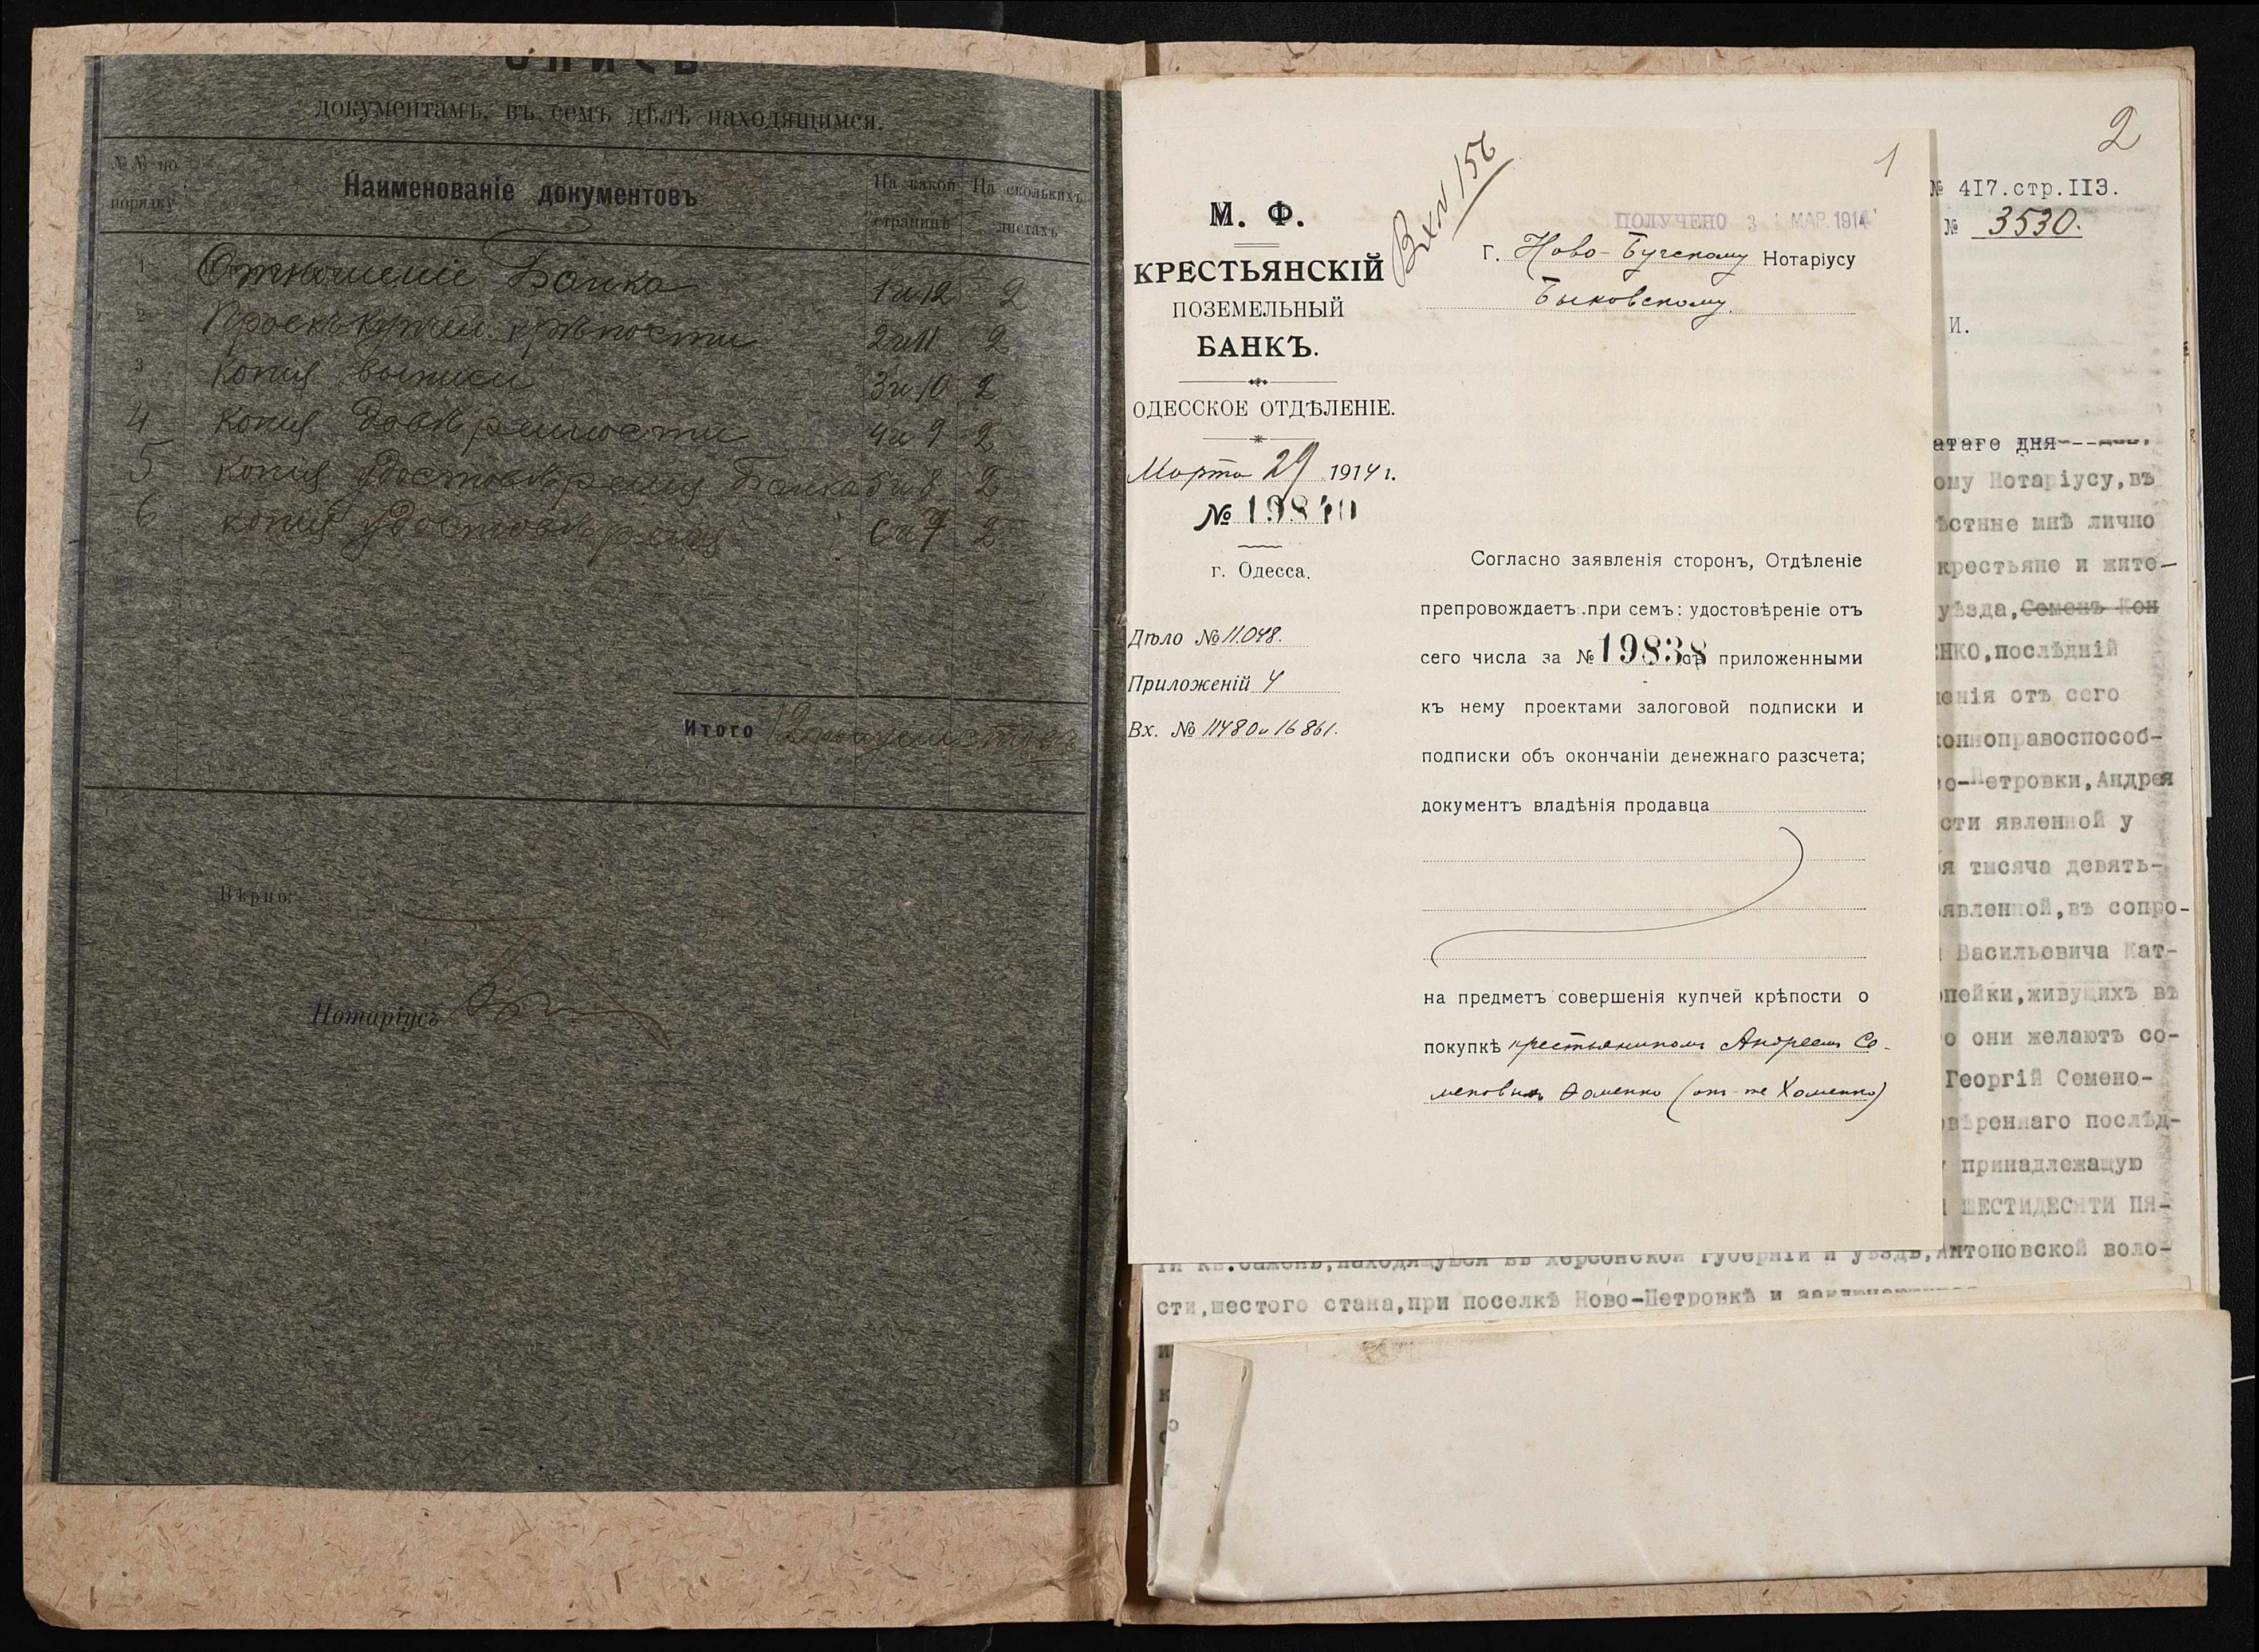 ОПИСЬ
документамъ, въ семъ дѣлѣ находящимся.
№№ по порядку
Наименованіе документовъ
На какой страницѣ
На сколькихъ листахъ
1 Отношеніе Банка 1 и 12 2
2 Проектъ купчей крѣпости 2 и 11 2
3 Копія выписи 3 и 10 2
4 Копія довѣренности 4 и 9 2
5 Копія удостовѣренія Банка 5 и 8 2
6 Копія удостовѣренія 6 и 7 2
Итого 12
Вѣрно:
Нотаріусъ
1
Вх № 156
М. Ф.
КРЕСТЬЯНСКІЙ
ПОЗЕМЕЛЬНЫЙ
БАНКЪ.
ОДЕССКОЕ ОТДѢЛЕНІЕ.
Марта 29 1914 г.
№ 19840
г. Одесса.
Дѣло № 11.048.
Приложеній 4
Вх. № 11480 и 16861.
ПОЛУЧЕНО 3 МАР. 1914
г. Ново-Бугскому Нотаріусу
Быковскому.
Согласно заявленія сторонъ, Отдѣленіе
препровождаетъ при семъ: удостовѣреніе отъ
сего числа за № 19838 съ приложенными
къ нему проектами залоговой подписки и
подписки объ окончаніи денежнаго разсчета;
документъ владѣнія продавца
на предметъ совершенія купчей крѣпости о
покупкѣ крестьяниномъ Андреемъ Се-
меновымъ Фоменко (онъ-же Хоменко)
2
№ 417.стр.113.
№ 3530.
И.
атаго дня
ому Нотаріусу,въ
ѣстине мнѣ лично
крестьяне и жите-
уѣзда,Семенъ Кон
ЕНКО,послѣдній
ленія отъ сего
конноправоспособ-
во-Петровки,Андрея
сти явленной у
я тысяча девять-
явленной,въ сопро-
Васильовича Кат-
опейки,живущихъ въ
о они желаютъ со-
Георгій Семено-
овѣреннаго послѣд-
принадлежащую
ШЕСТИДЕСЯТИ ПЯ-
ТИ кв.сажень,находящуюся въ Херсонской губерніи и уѣздѣ,Антоновской воло-
сти,шестого стана,при поселкѣ Ново-Петровкѣ и